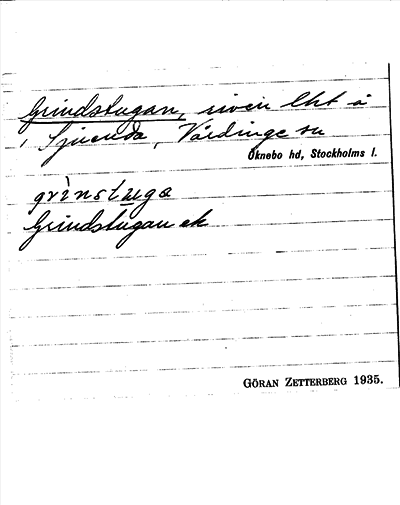 Grindstugan, riven lht å
, Sjuenda, Vårdinge sn
Öknebo hd, Stockholms l.
grinstuga
Grindstugan ek
GÖRAN ZETTERBERG 1935.